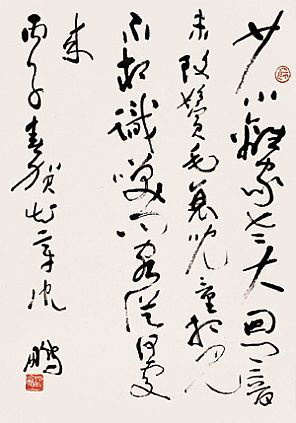 少小離家老大回乡音
未改鬢毛衰兒童相见
不相識笑问客從何處
来
丙子春賀知章沈鵬